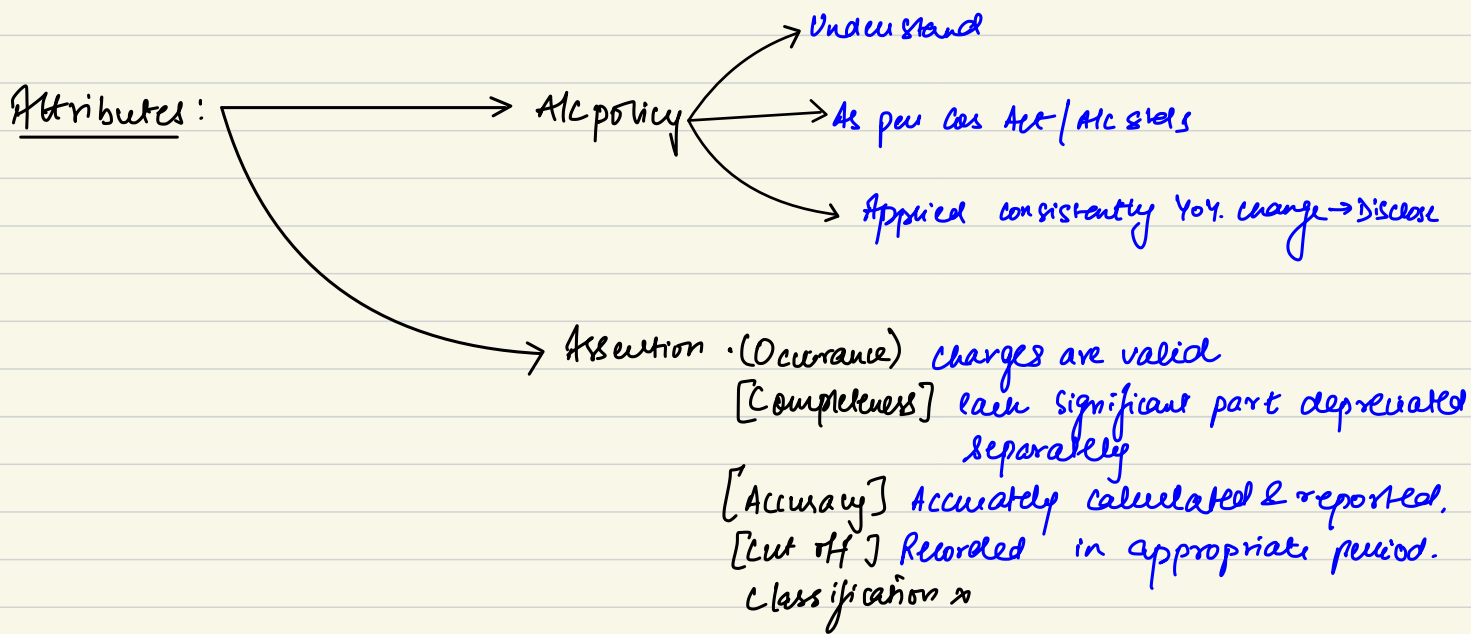 Understand
Attributes: A/c policy
As per Cos Act/A/c stds
Applied consistently YoY. change → Disclose
Assertion · (Occurrance) charges are valid
[Completeness] each significant part depreciated
separately
[Accuracy] Accurately calculated & reported.
[Cut off] Recorded in appropriate period.
Classification x